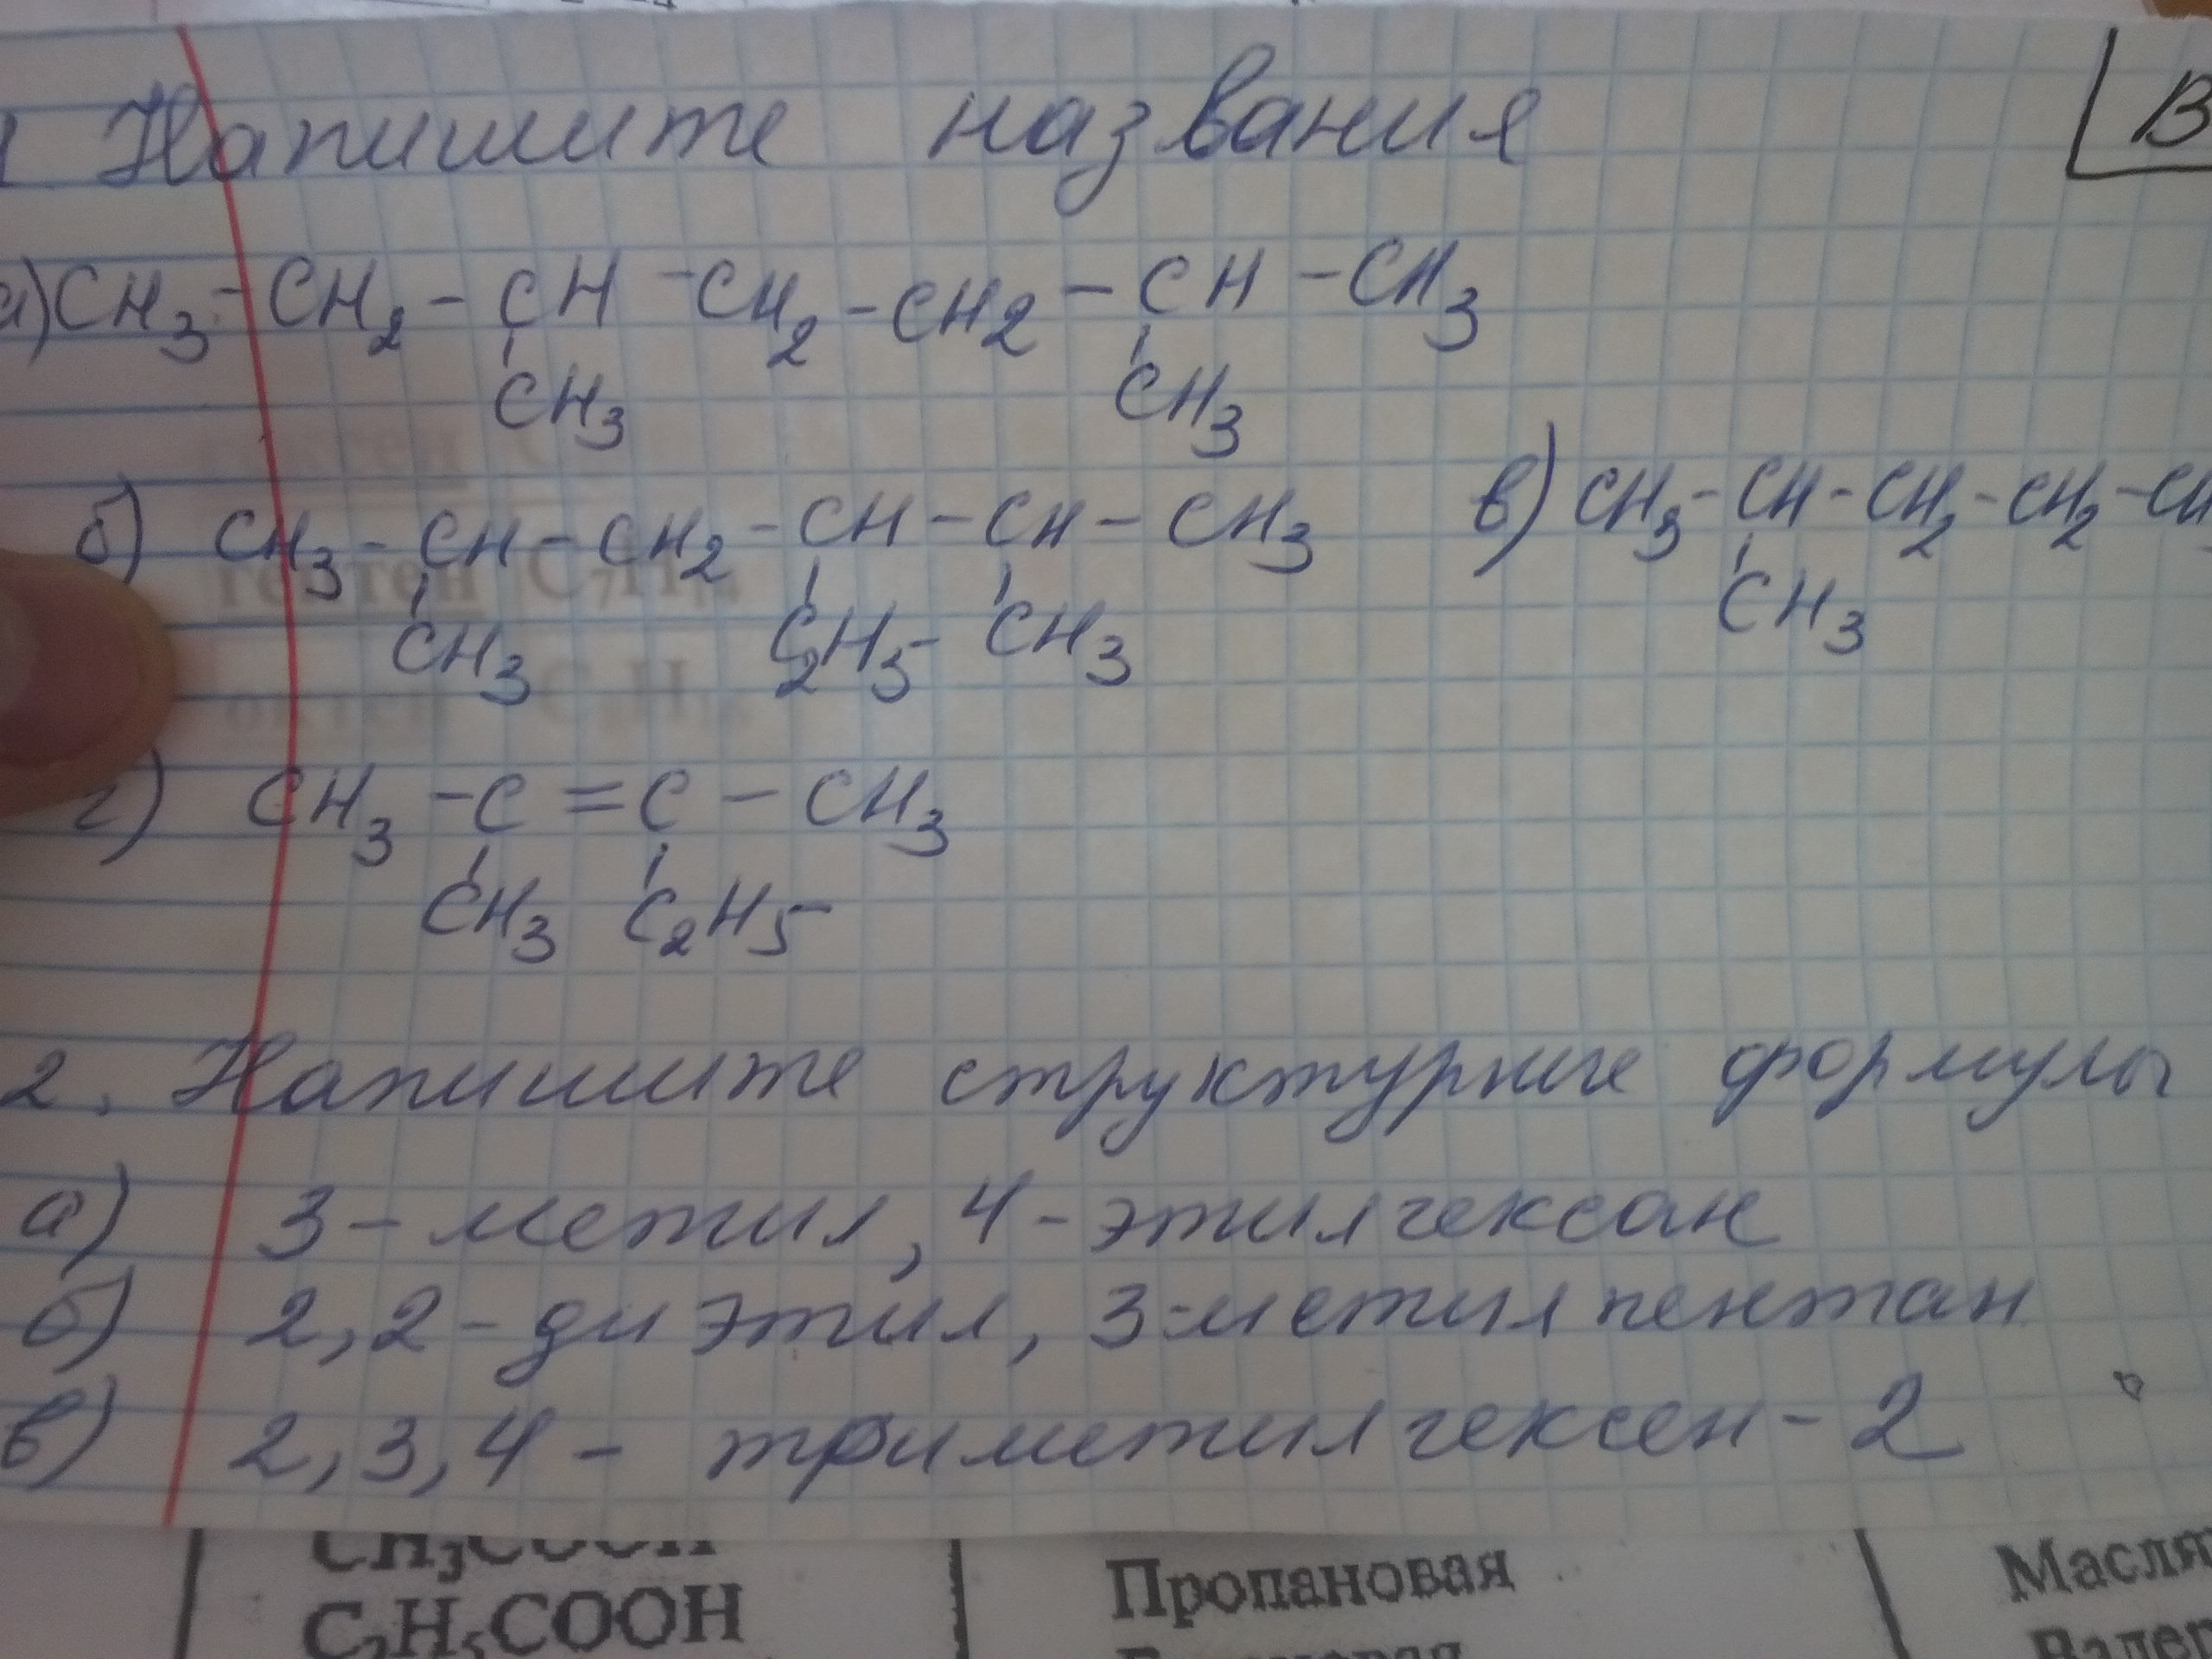 1 Напишите названия
В
а) CH3 - CH2 - CH - CH2 - CH2 - CH - CH3
CH3 CH3
б) CH3 - CH - CH2 - CH - CH - CH3
CH3 C2H5 CH3
в) CH3 - CH - CH2 - CH2 - CH
CH3
г) CH3 - C = C - CH3
CH3 C2H5
2. Напишите структурные формулы
а) 3-метил, 4-этилгексан
б) 2,2-диэтил, 3-метилпентан
в) 2,3,4-триметилгексен-2
CH3COOH
C2H5COOH
Пропановая
Масля